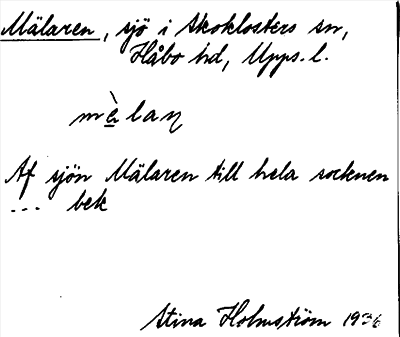 Mälaren, sjö i Skoklosters sn,
Håbo hd, Upps. l.
mèlaɳ
Af sjön Mälaren till hela socknen
... bek
Stina Holmström 1936